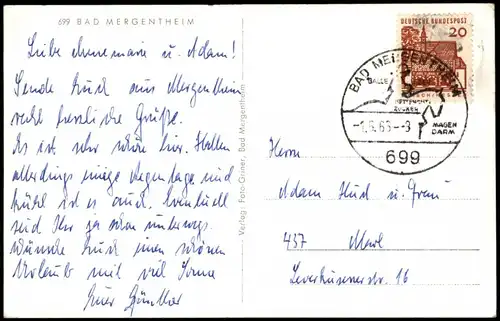 699 BAD MERGENTHEIM
Liebe Annemarie u. Adam!
Sende Euch aus Mergentheim
recht herzliche Grüße.
Es ist sehr schön hier. Hatten
allerdings einige Regentage und
kühl ist es auch. Eventuell
seid Ihr ja schon unterwegs.
Wünsche Euch einen schönen
Urlaub mit viel Sonne
Euer Günther
Verlag: Foto-Gruner, Bad Mergentheim
DEUTSCHE BUNDESPOST
20
BAD MERGENTHEIM
GALLE
ZUCKER
MAGEN
DARM
699
Herrn
Adam und Frau
437 Marl
Leverkusenerstr. 16